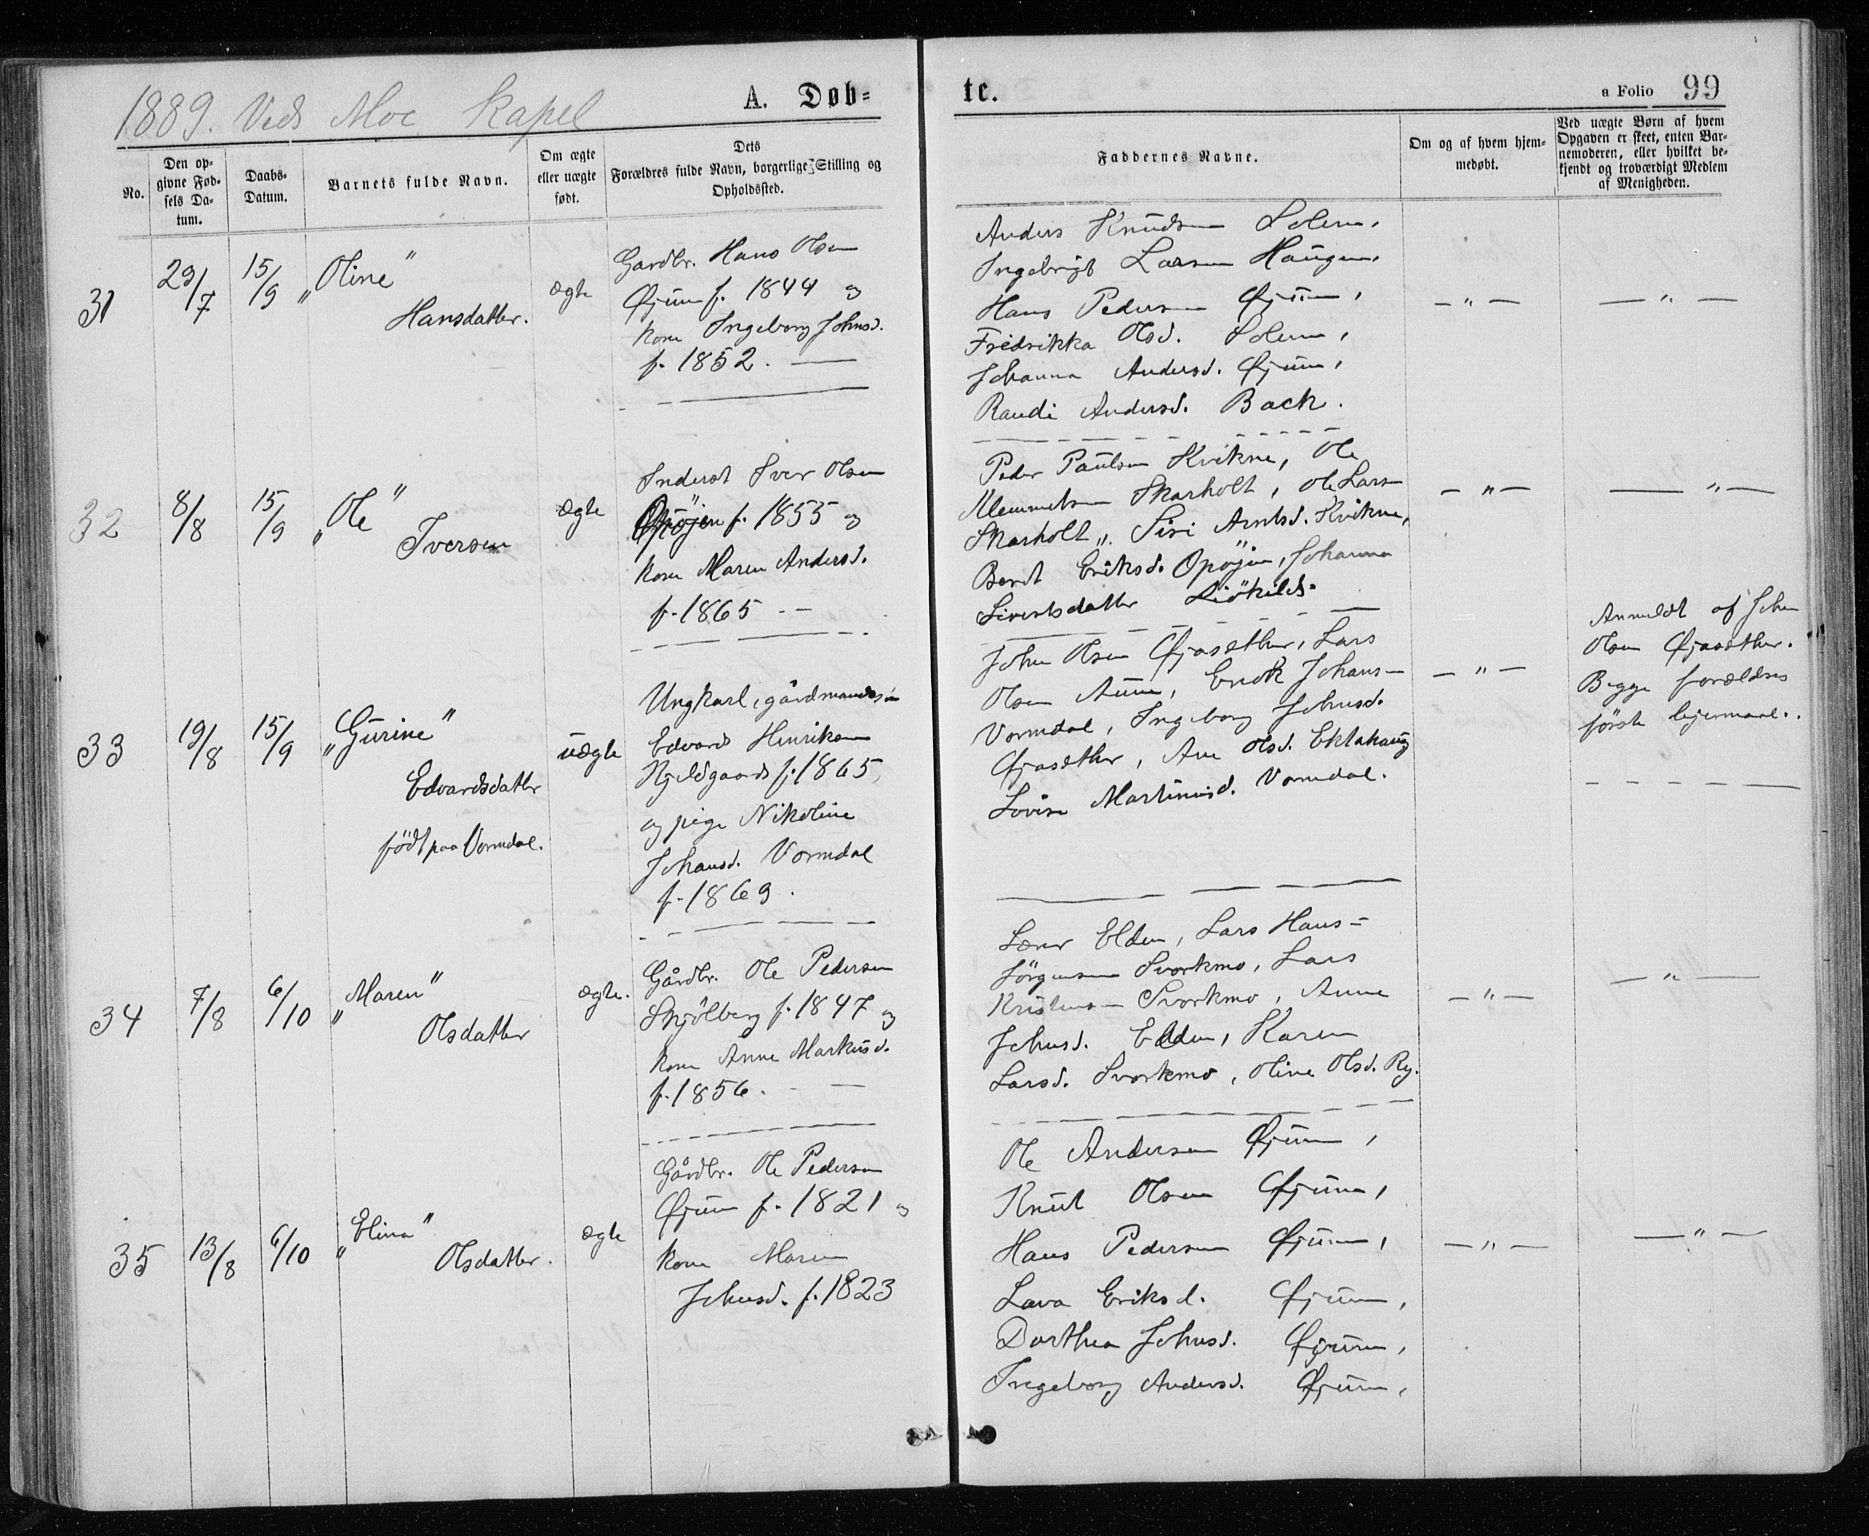 1889. Veds Moe Kapel
A. Døb=
te.
a Folio 99
No.
Den op-
givne Fød-
sels Da-
tum.
Daabs-
Datum.
Barnets fulde Navn.
Om ægte
eller uægte
født.
Dets
Forældres fulde Navn, borgerlige Stilling og
Opholdssted.
Faddernes Navne.
Om og af hvem hjem-
medøbt.
Ved uægte Børn af hvem
Opgaven er skeet, enten Bar-
nemoderen, eller hvilket be-
kjendt og troværdigt Medlem
af Menigheden.
31
29/7
15/9
„Oline"
Hansdatter.
ægte
Gardbr. Hans Olsen
Øjum f. 1844 og
kone Ingeborg Johnsd.
f. 1852. —
Anders Knudsen Solem,
Ingebrigt Larsen Haugen,
Hans Pedersen Øjum,
Fredrikka Olsd. Solem,
Johanna Andersd. Øjum,
Randi Andersd. Back.
— „ —
— „ —
32
8/8
15/9
„Ole"
Iversen
ægte
Inderst Iver Olsen
Opøjen f. 1855 og
kone Maren Andersd.
f. 1865 - —
Peder Paulsen Kvikne, Ole
Klemmetsen Skarholt, Ole Larsen
Skarholt „. Siri Arntsd. Kvikne,
Beret Eriksd. Opøjen, Johanna
Sivertsdatter
— „ —
— „ —
33
19/8
15/9
„Gurine"
Edvardsdatter
født paa Vormdal.
uægte
Ungkarl, gårdmandssøn
Edvard Henriksen
f. 1865,
og pige Nikoline
Johansd. Vormdal
f. 1869.
John Olsen Øjasæther, Lars
Olsen Aune, Erick Johansen
Vormdal, Ingeborg Johnsd.
Øjasæther, Ane Olsd. Eklahaug
Lovise Martinusd. Vormdal.
— „ —
Anmeldt af John
Olsen Øjasæther.
Begge forældres
første lejermaal.
34
7/8
6/10
„Maren"
Olsdatter
ægte.
Gårdbr. Ole Pedersen
Skjølberg f. 1847 og
kone Anne Markusd.
f. 1856. - —
Lærer Elden, Lars Hans=
Jørgensen Svorkmo, Lars
Kristensen Svorkmo, Anne
Johnsd. Elden, Karen
Larsd. Svorkmo, Oline Olsd. Ry.
— „ —
— „ —
35
13/8
6/10
„Elina"
Olsdatter.
ægte
Gårdbr. Ole Pedersen
Øjum f. 1821 og
kone Maren
Johnsd. f. 1823
Ole Andersen Øjum,
Knut Olsen Øjum,
Hans Pedersen Øjum,
Lava Eriksd. Øjum,
Dorthea Johnsd. Øjum,
Ingeborg Andersd. Øjum,
— „ —
— „ —